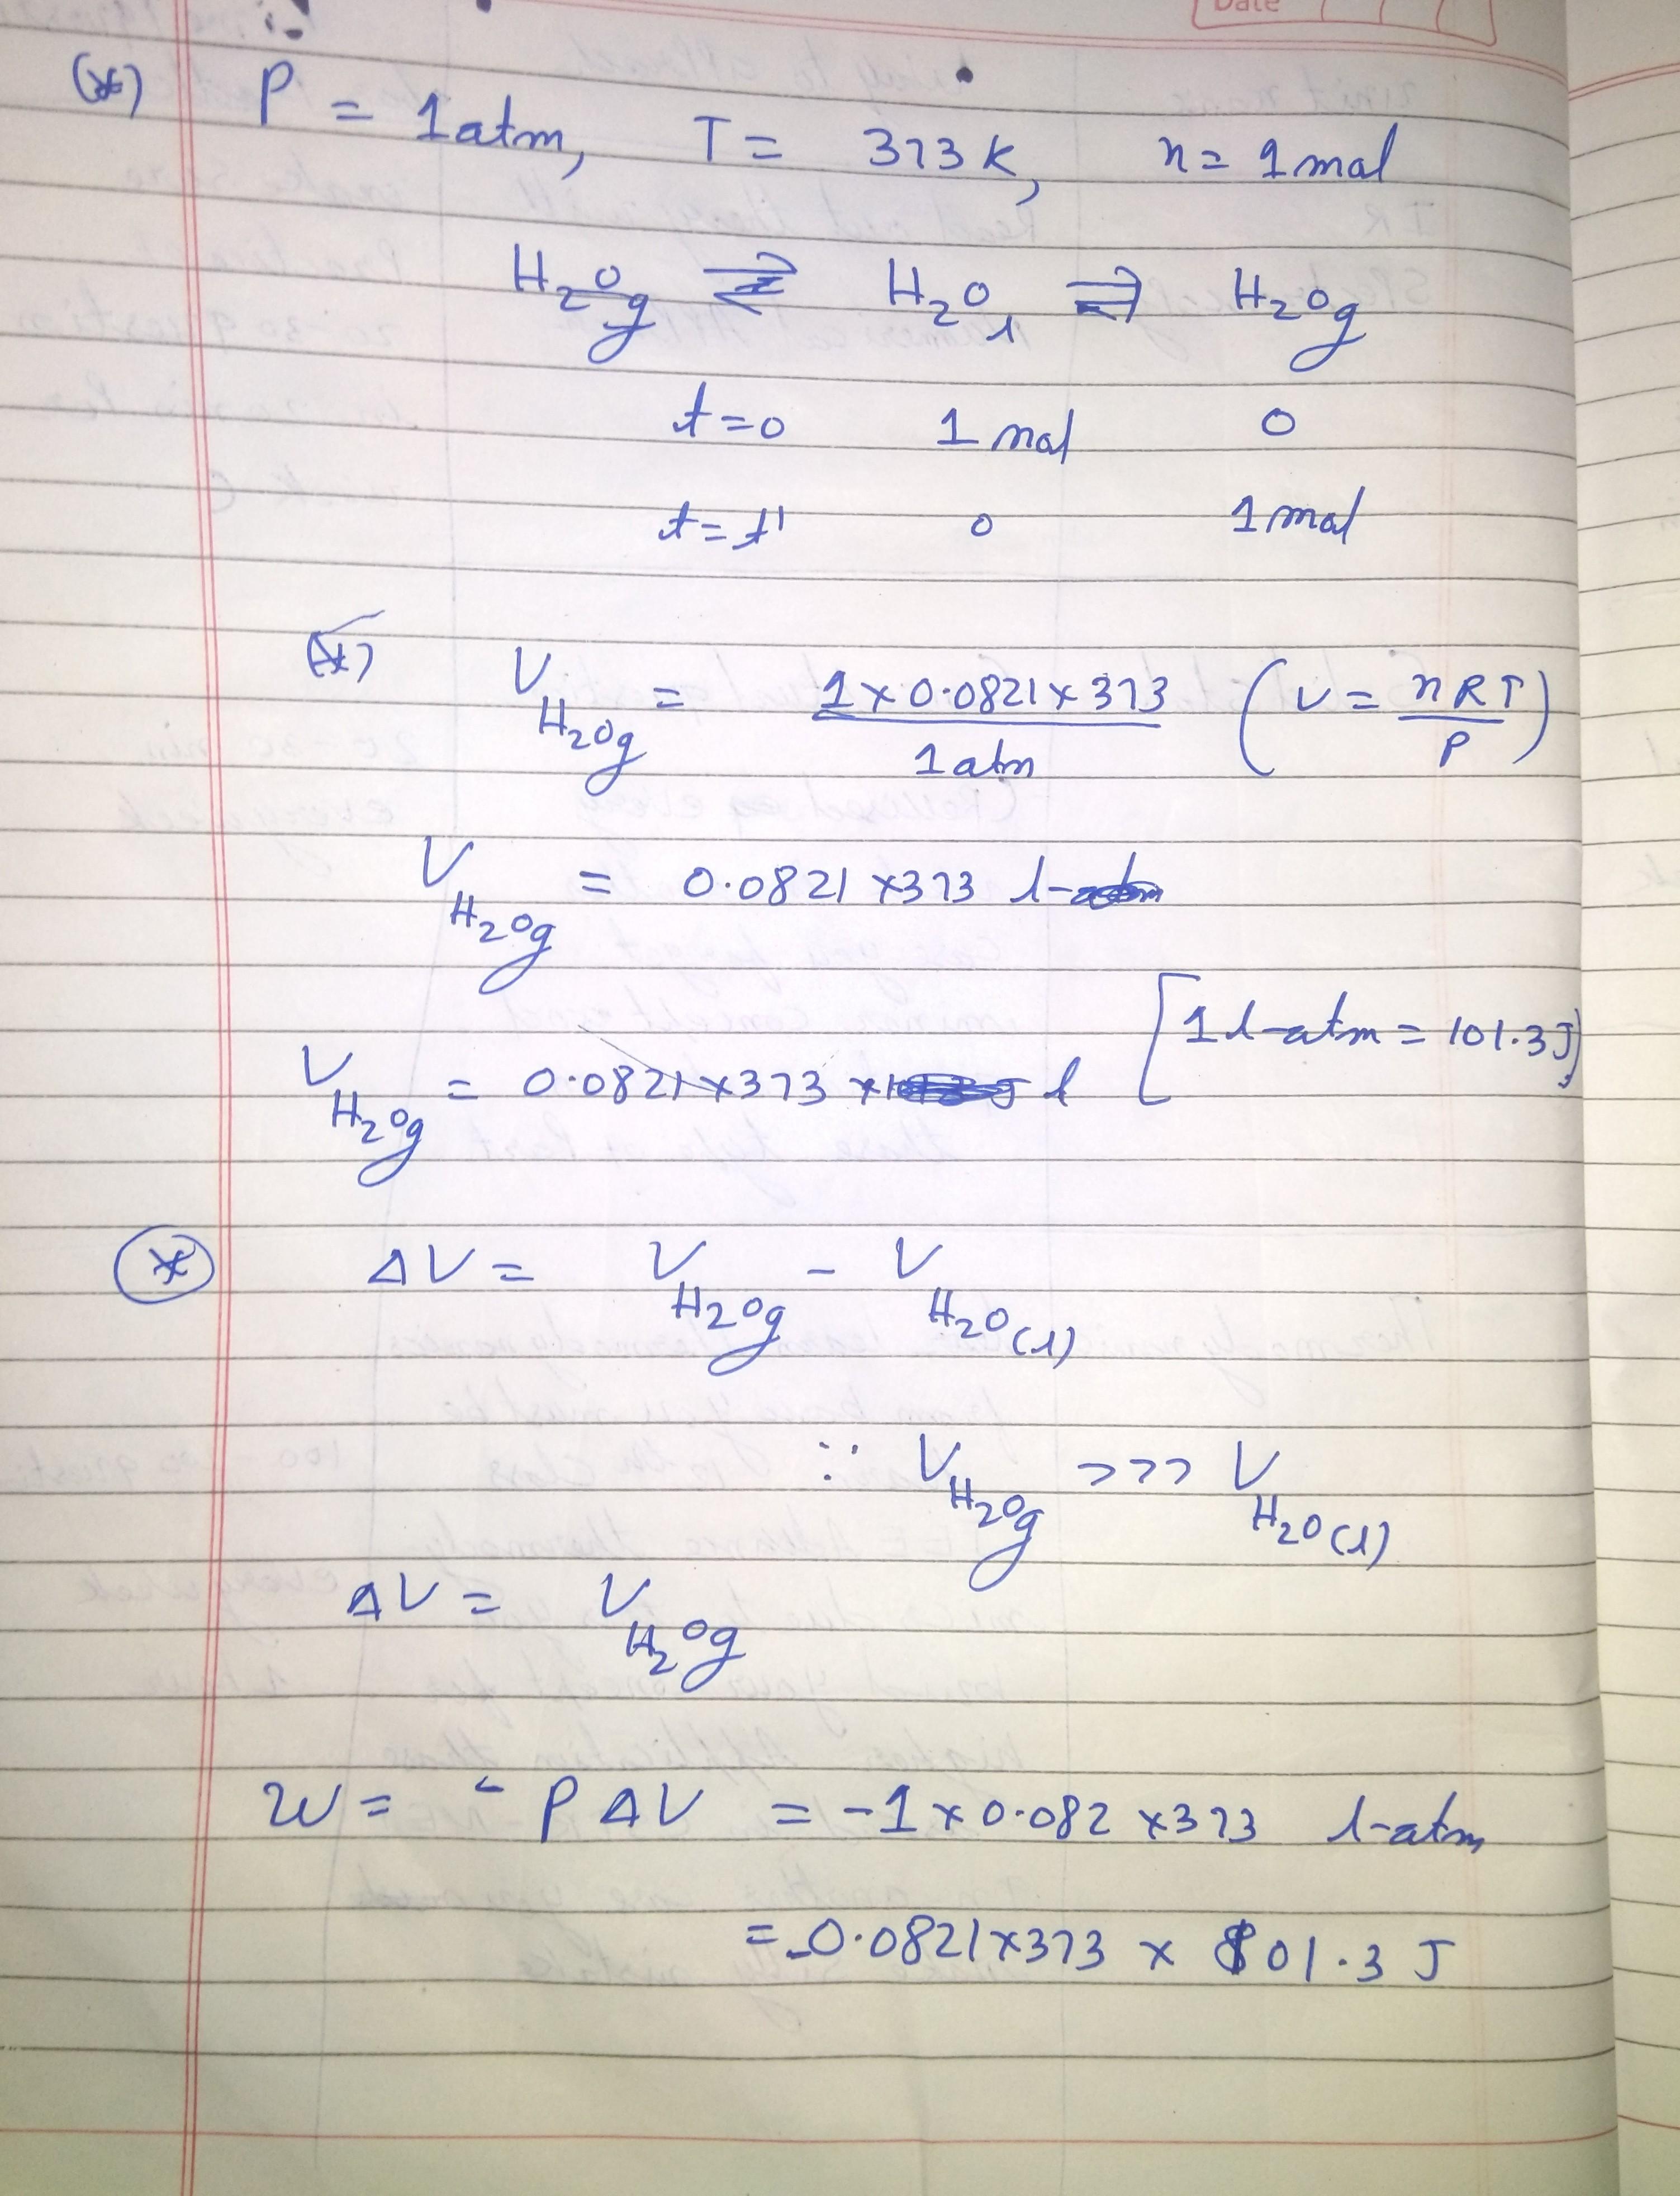 Date
(*) P = 1atm, T = 373 K, n = 1 mol
H₂Og ⇌ H₂Ol ⇌ H₂Og
t=0 1 mol 0
t=t' 0 1 mol
(*) V H₂Og = 1 × 0.0821 × 373 / 1 atm (V = nRT / P)
V H₂Og = 0.0821 × 373 l
V H₂Og = 0.0821 × 373 l [1 l-atm = 101.3 J]
(*) ΔV = V H₂Og - V H₂O(l)
∵ V H₂Og >>> V H₂O(l)
ΔV = V H₂Og
W = - P ΔV = -1 × 0.082 × 373 l-atm
= -0.0821 × 373 × 101.3 J